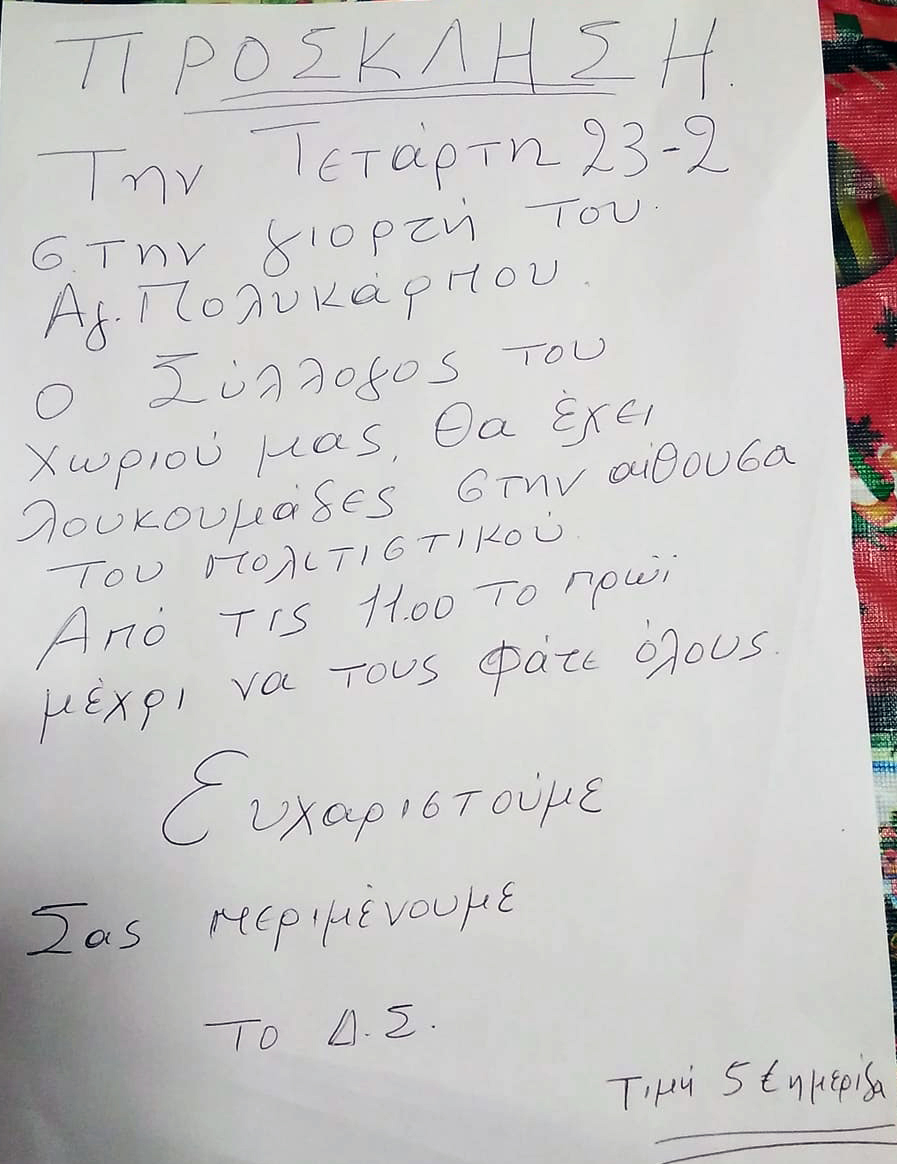 ΠΡΟΣΚΛΗΣΗ.
Την Τετάρτη 23-2
στην γιορτή του
Αγ. Πολυκάρπου.
Ο Σύλλογος του
χωριού μας, θα έχει
λουκουμάδες στην αίθουσα
του πολιτιστικού
Από τις 11.00 το πρωϊ
μέχρι να τους φάτε όλους.
Ευχαριστούμε
Σας περιμένουμε
Το Δ.Σ.
Τιμή 5 € ημερίδα